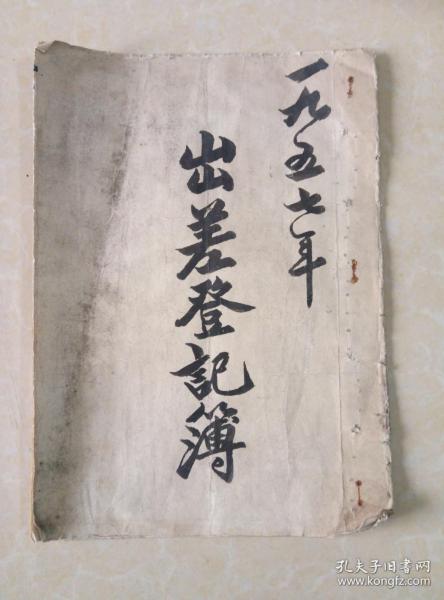 一九五七年
出差登記簿
孔夫子旧书网
www.kongfz.com